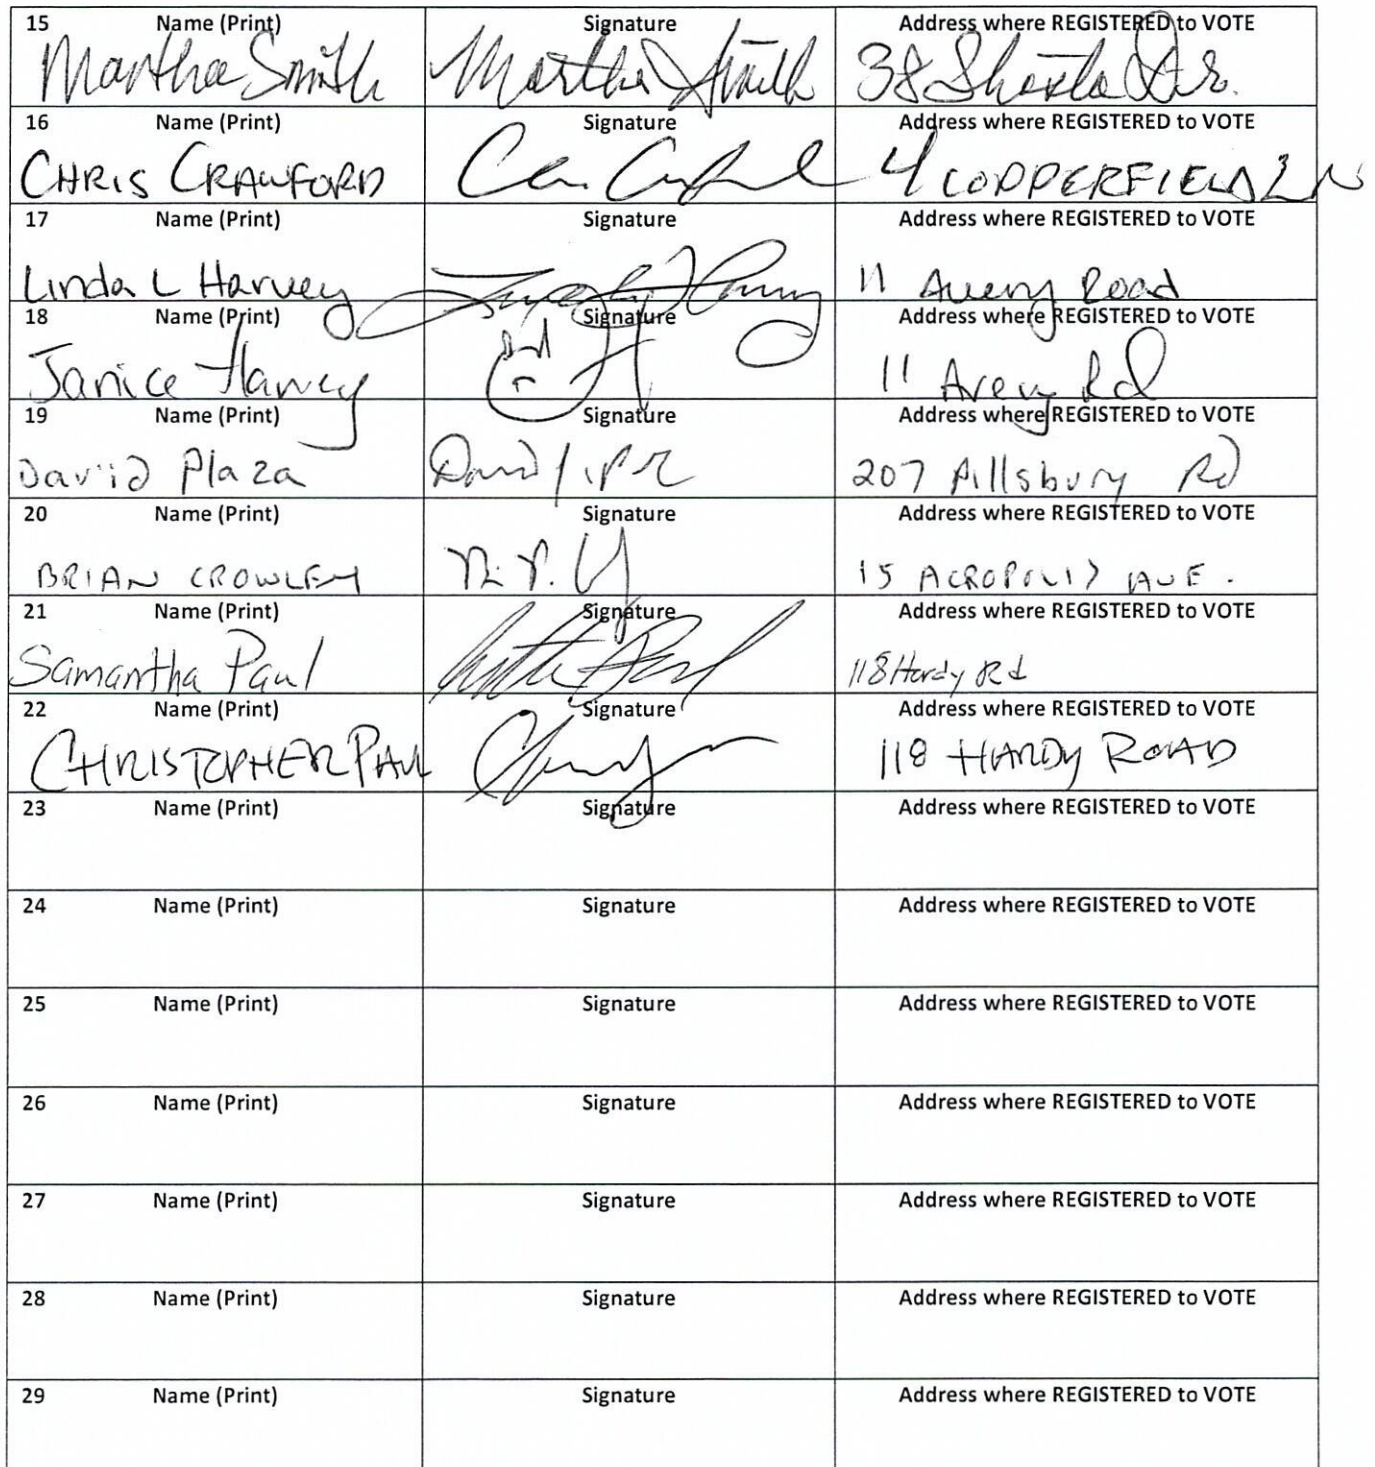 15 Name (Print) Signature Address where REGISTERED to VOTE
Martha Smith Martha Smith 38 Shasta Dr.
16 Name (Print) Signature Address where REGISTERED to VOTE
CHRIS CRAWFORD 4 COPPERFIELD LN
17 Name (Print) Signature Address where REGISTERED to VOTE
Linda L Harvey 11 Avery Road
18 Name (Print) Signature Address where REGISTERED to VOTE
Janice Harvey 11 Avery Rd
19 Name (Print) Signature Address where REGISTERED to VOTE
David Plaza 207 Pillsbury Rd
20 Name (Print) Signature Address where REGISTERED to VOTE
BRIAN CROWLEY 15 ACROPOLIS AVE.
21 Name (Print) Signature Address where REGISTERED to VOTE
Samantha Paul 118 Hardy Rd
22 Name (Print) Signature Address where REGISTERED to VOTE
CHRISTOPHER PAUL 118 HARDY ROAD
23 Name (Print) Signature Address where REGISTERED to VOTE
24 Name (Print) Signature Address where REGISTERED to VOTE
25 Name (Print) Signature Address where REGISTERED to VOTE
26 Name (Print) Signature Address where REGISTERED to VOTE
27 Name (Print) Signature Address where REGISTERED to VOTE
28 Name (Print) Signature Address where REGISTERED to VOTE
29 Name (Print) Signature Address where REGISTERED to VOTE